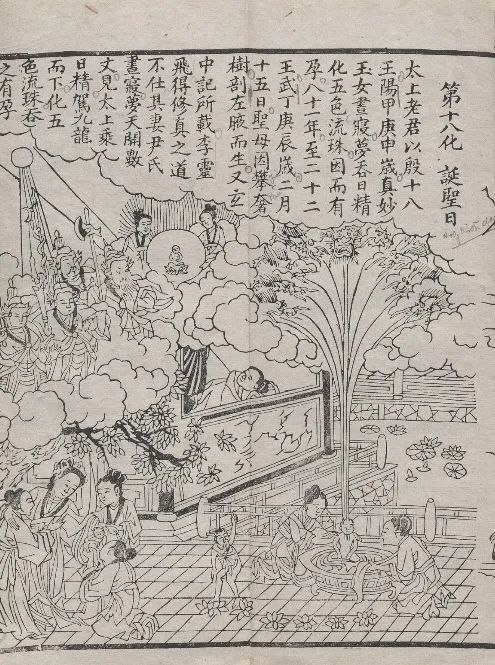 第十八化 誕聖日
太上老君以殷十八
王陽甲庚申歲真妙
玉女晝寢夢吞日精
化五色流珠因而有
孕八十一年至二十二
王武丁庚辰歲二月
十五日聖母因攀
樹剖左腋而生又玄
中記所載李靈
飛得修真之道
不仕其妻尹氏
晝寢夢天開數
丈見太上乘
日精駕九龍
而下化五
色流珠吞
之有孕